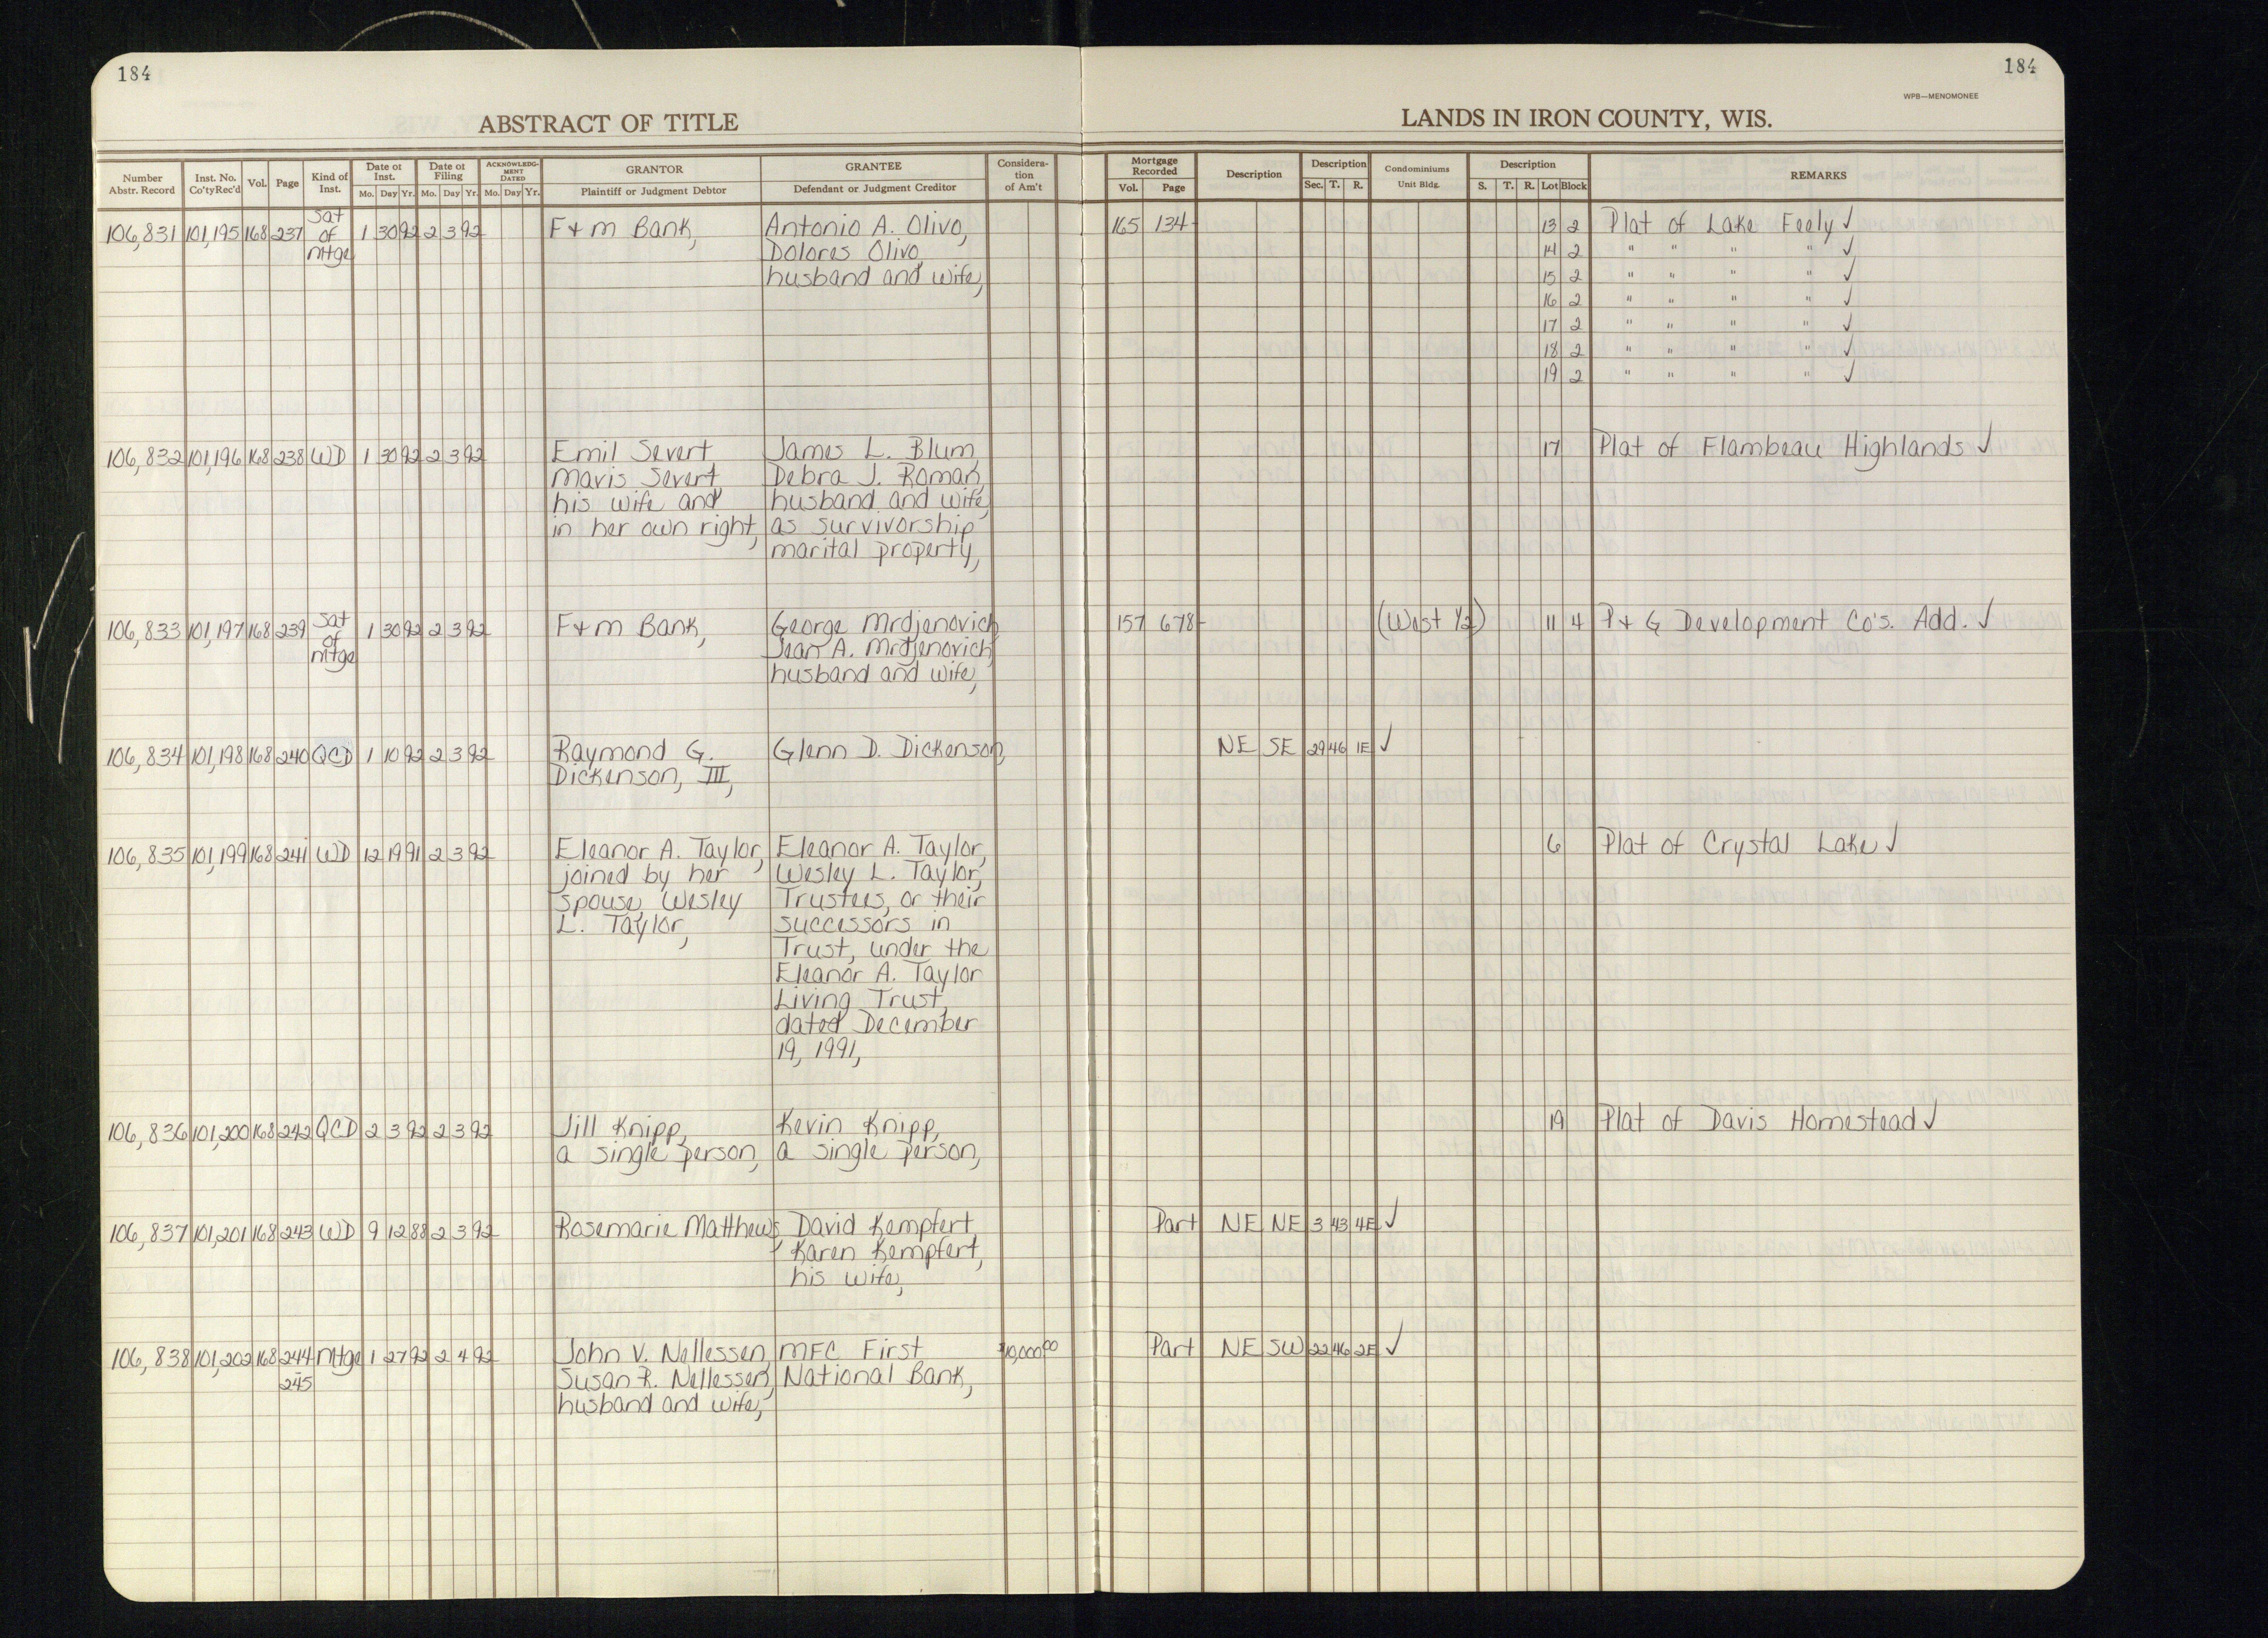 184
184
WPB—MENOMONEE
ABSTRACT OF TITLE
LANDS IN IRON COUNTY, WIS.
Number Abstr. Record | Inst. No. Co'ty Rec'd | Vol. | Page | Kind of Inst. | Date of Inst. Mo. Day Yr. | Date of Filing Mo. Day Yr. | ACKNOWLEDGMENT DATED Mo. Day Yr. | GRANTOR Plaintiff or Judgment Debtor | GRANTEE Defendant or Judgment Creditor | Consideration of Am't | Mortgage Recorded Vol. Page | Description | Description Sec. T. R. | Condominiums Unit Bldg. | Description S. T. R. Lot Block | REMARKS
106,831 101,195 168 237 Sat of Mtge 1 30 92 2 3 92 F & M Bank, Antonio A. Olivo, 165 134 13 2 Plat of Lake Feely ✓
Dolores Olivo, 14 2 " " " " ✓
husband and wife, 15 2 " " " " ✓
16 2 " " " " ✓
17 2 " " " " ✓
18 2 " " " " ✓
19 2 " " " " ✓
106,832 101,196 168 238 WD 1 30 92 2 3 92 Emil Severt James L. Blum, 17 Plat of Flambeau Highlands ✓
Mavis Severt, Debra J. Roman,
his wife and husband and wife,
in her own right, as survivorship
marital property,
106,833 101,197 168 239 Sat of Mtge 1 30 92 2 3 92 F & M Bank, George Mrdjenovich 157 678 (West ½) 11 4 P & G Development Co's. Add. ✓
Jean A. Mrdjenovich,
husband and wife,
106,834 101,198 168 240 QCD 1 10 92 2 3 92 Raymond G. Glenn D. Dickenson, NE SE 29 46 1E ✓
Dickenson, III,
106,835 101,199 168 241 WD 12 19 91 2 3 92 Eleanor A. Taylor, Eleanor A. Taylor, 6 Plat of Crystal Lake ✓
joined by her Wesley L. Taylor,
spouse, Wesley Trustees, or their
L. Taylor, successors in
Trust, under the
Eleanor A. Taylor
Living Trust,
dated December
19, 1991,
106,836 101,200 168 242 QCD 2 3 92 2 3 92 Jill Knipp, Kevin Knipp, 19 Plat of Davis Homestead ✓
a single person, a single person,
106,837 101,201 168 243 WD 9 12 88 2 3 92 Rosemarie Matthews, David Kempfert, Part NE NE 3 43 4E ✓
Karen Kempfert,
his wife,
106,838 101,202 168 244 Mtge 1 27 92 2 4 92 John V. Nellessen, MFC First $10,000.00 Part NE SW 22 46 2E ✓
245 Susan R. Nellessen, National Bank,
husband and wife,